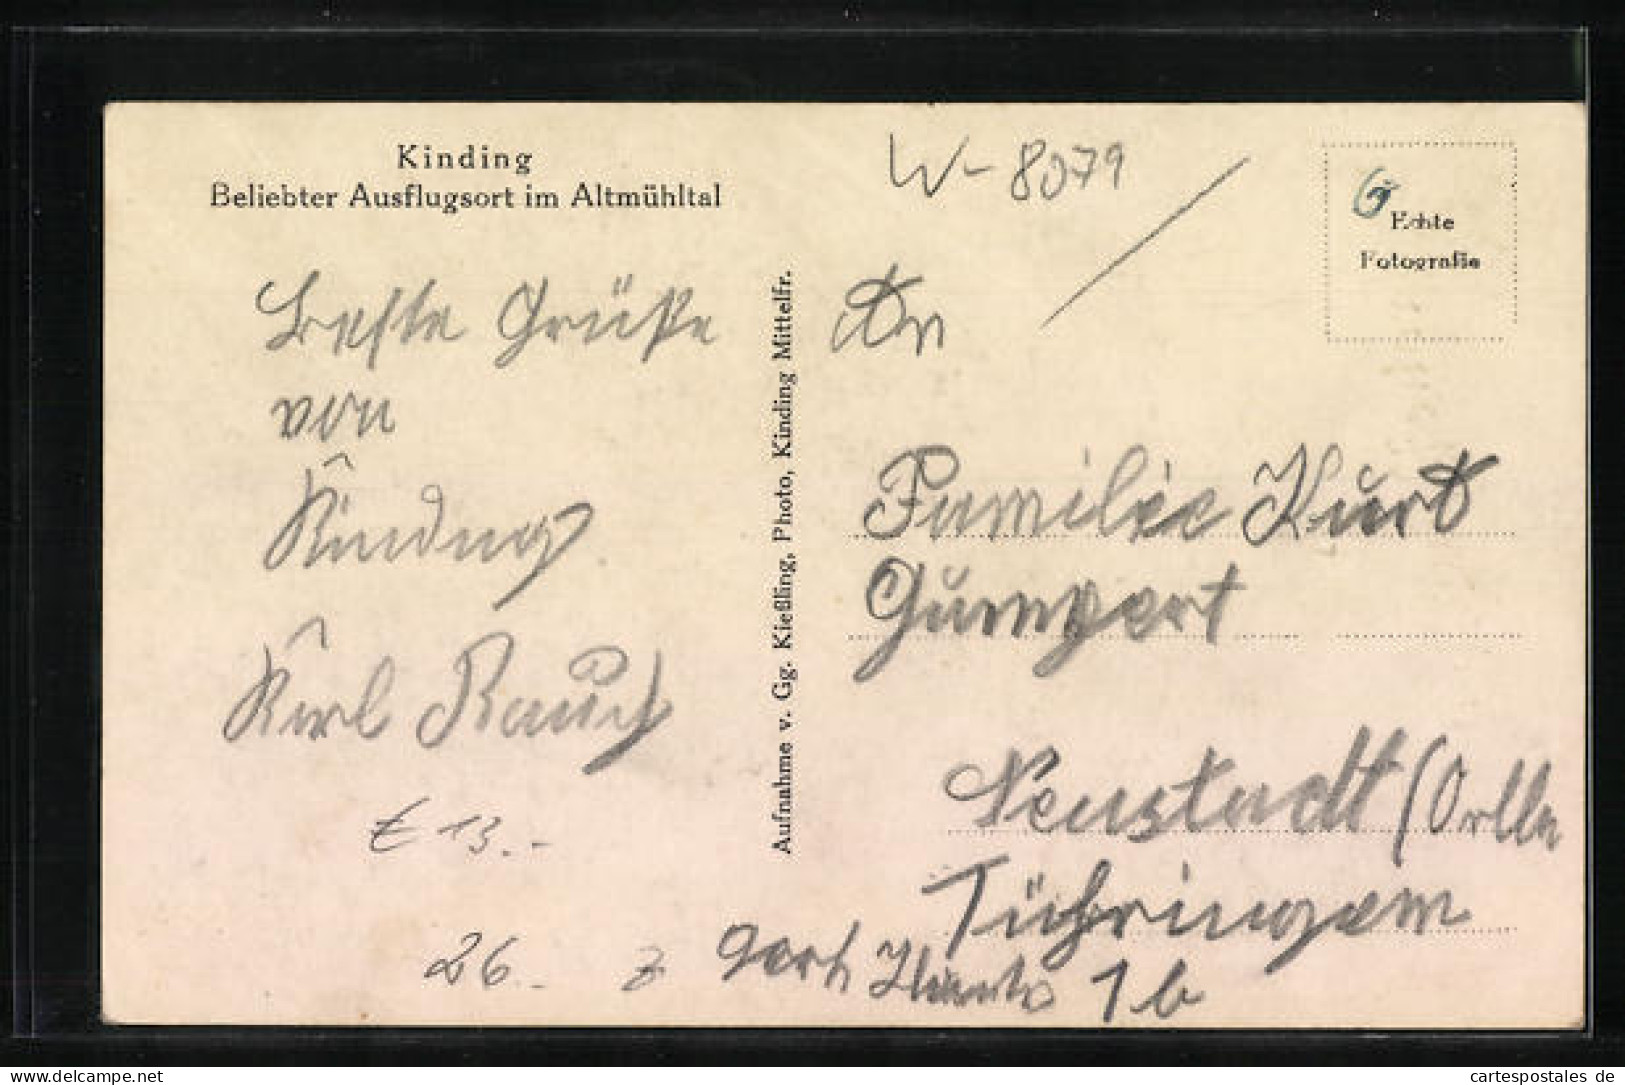 Kinding
Beliebter Ausflugsort im Altmühltal
W-8079
Echte
Fotografie
Beste Grüße
von
Kinding
Karl Rauch
€ 13.-
26.-
Aufnahme v. Gg. Kießling, Photo, Kinding Mittelfr.
An
Familie Kurt
Gumpert
Neustadt (Orla
Thüringen
1 b
delcampe.net
cartespostales de